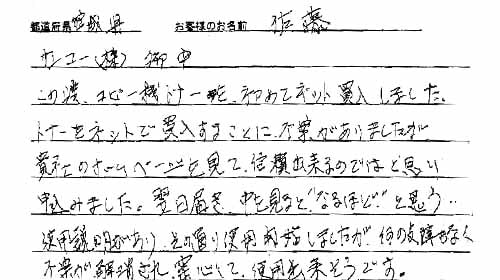 都道府県 宮城県 お客様のお名前 佐藤
サンコー(株) 御中
この度、コピー機トナーを、初めてネット買入しました。
トナーをネットで買入することに、不案がありましたが
貴社のホームページを見て、信頼出来るのではと思い
申込みました。翌日届き、中を見ると"なるほど"と思う…
使用説明があり、その通り使用開始しましたが、何の支障もなく
不案が解消され、安心して、使用出来そうです。